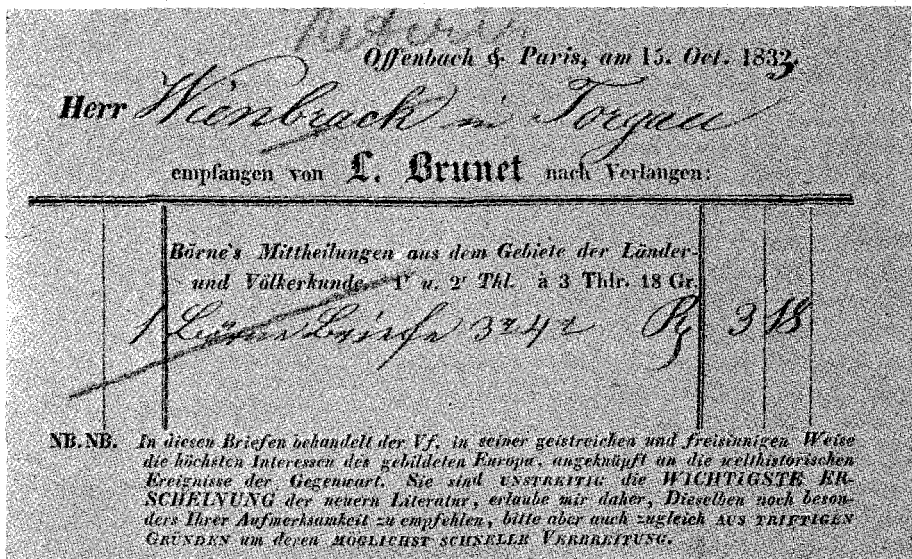 Offenbach & Paris, am 15. Oct. 1833.
Herr Wienbrack in Torgau
empfangen von L. Brunet nach Verlangen:
Börne's Mittheilungen aus dem Gebiete der Länder-
und Völkerkunde. 1r u. 2r Thl. à 3 Thlr. 18 Gr.
1 Börne Briefe 3r 4r 3 18
NB. NB. In diesen Briefen behandelt der Vf. in seiner geistreichen und freisinnigen Weise
die höchsten Interessen des gebildeten Europa, angeknüpft an die welthistorischen
Ereignisse der Gegenwart. Sie sind UNSTREITIG die WICHTIGSTE ER-
SCHEINUNG der neuern Literatur, erlaube mir daher, Dieselben noch beson-
ders Ihrer Aufmerksamkeit zu empfehlen, bitte aber auch zugleich AUS TRIFTIGEN
GRÜNDEN um deren MÖGLICHST SCHNELLE VERBREITUNG.